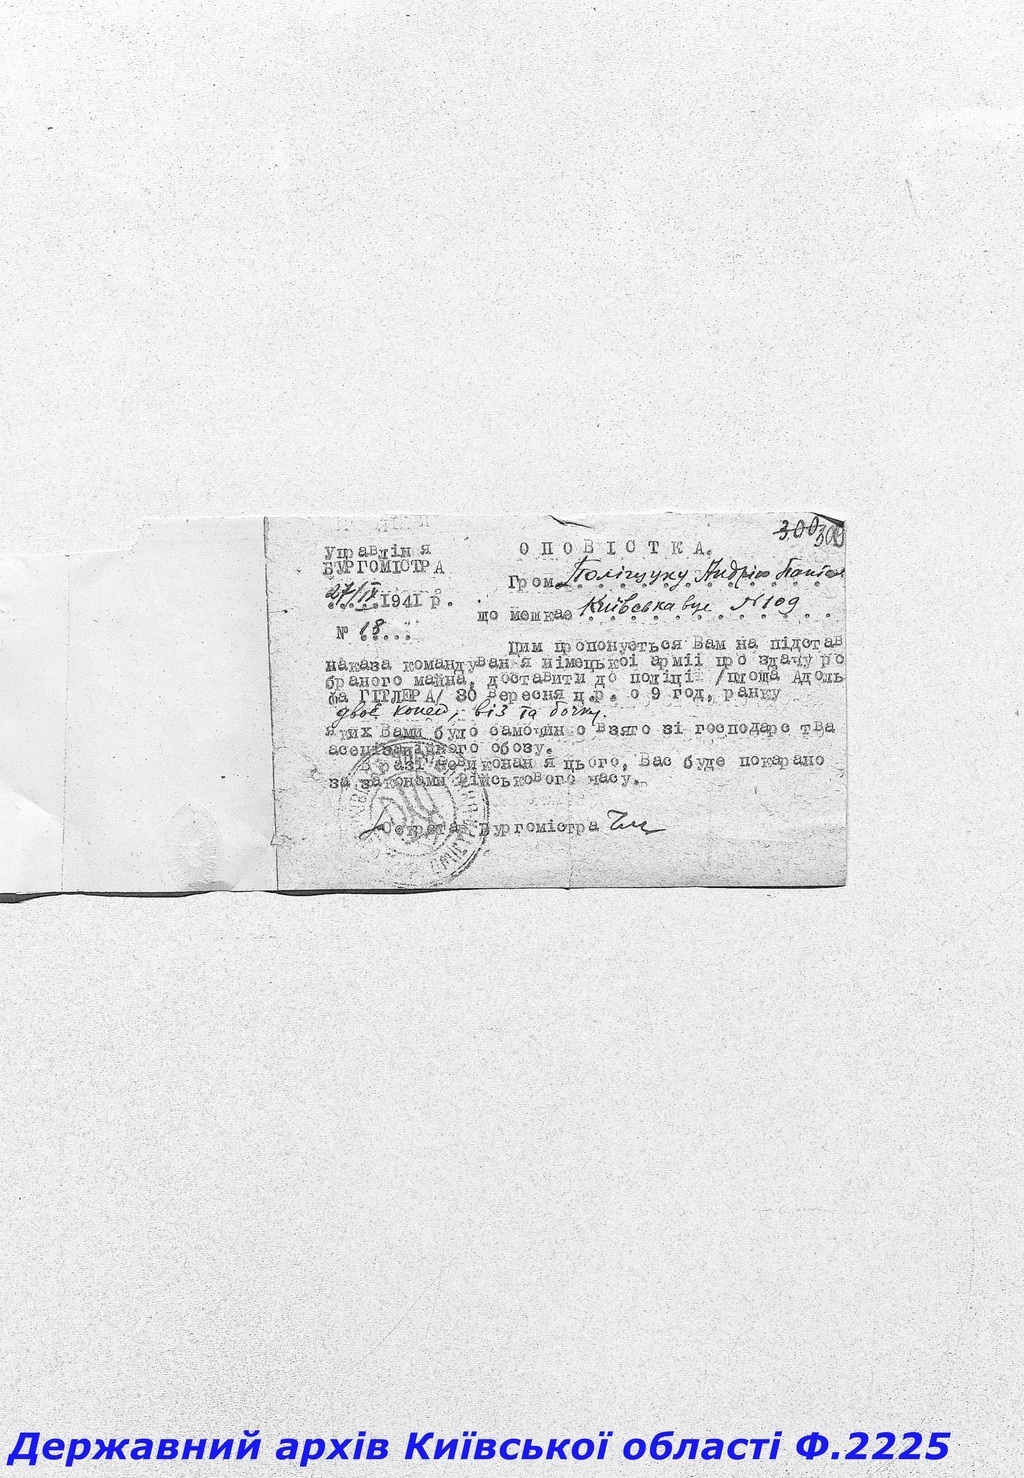 Управління
БУРГОМІСТРА
27/IX 1941 р.
№ 18
300
О П О В І С Т К А.
Гром. Поліщуку Андрію
що мешкає Київська вул №109
Цим пропонується Вам на підстав
наказа командування німецької армії про здачу ро
браного майна, доставити до поліції /площа Адоль
ба ГІТЛЕРА/ 30 вересня ц.р. о 9 год, ранку
двоє коней, віз та бочку.
яких Вами було самочинно взято зі господарства
асенізаційного обозу.
В разі невиконання цього, Вас буде покарано
за законами військового часу.
Секретар Бургомістра
Державний архів Київської області Ф.2225